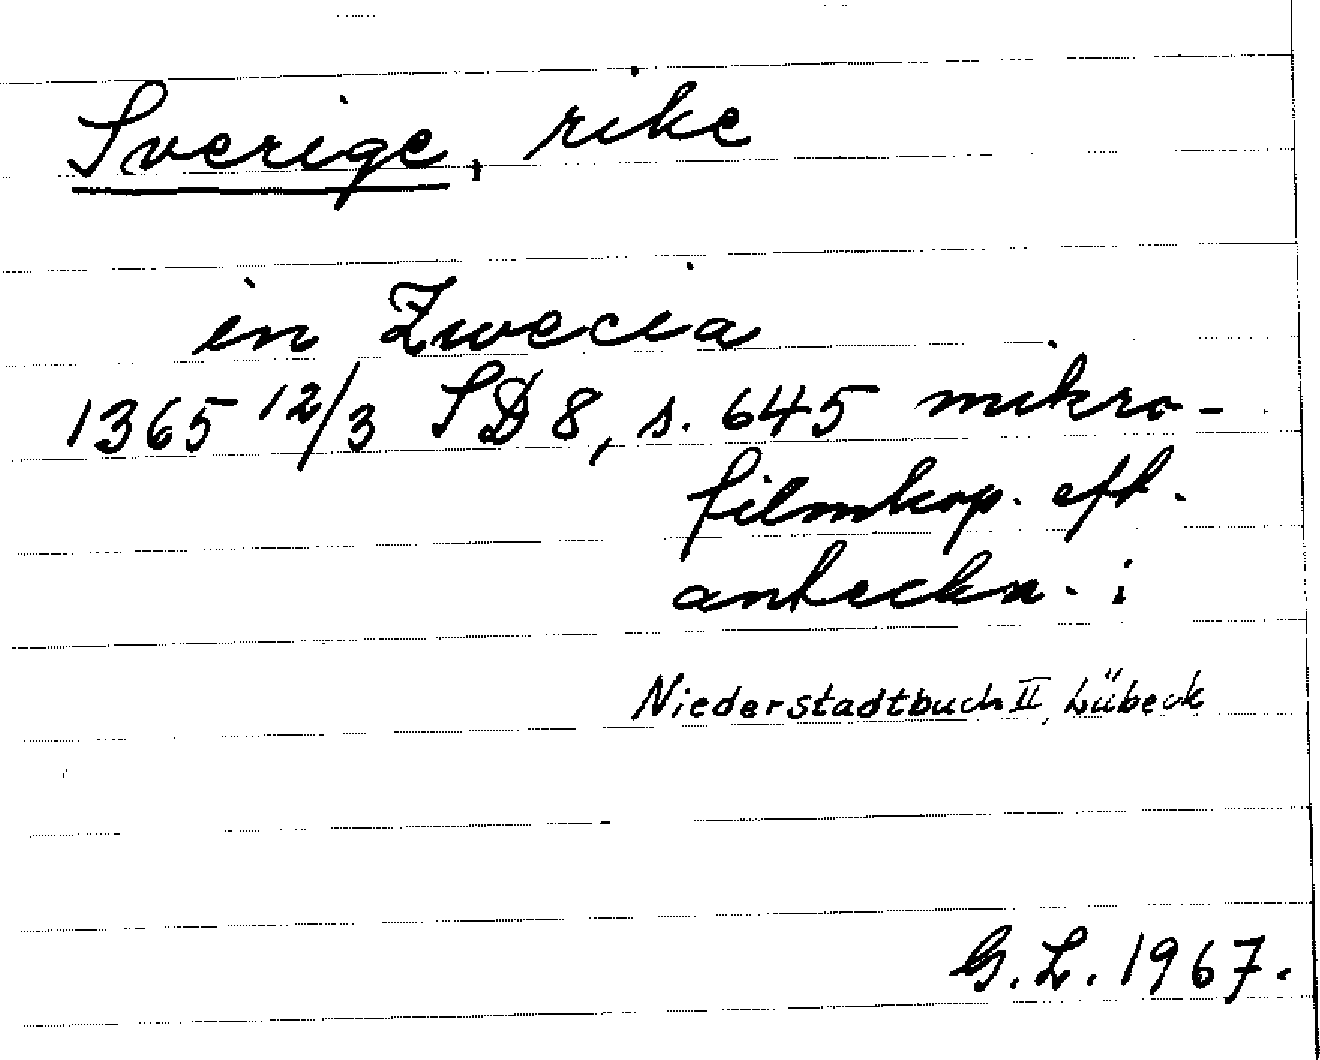 Sverige, rike
in Zwecia
1365 12/3 SD 8, s. 645 mikro-
filmkop. eft.
anteckn. i
Niederstadtbuch II, Lübeck
G.L. 1967.